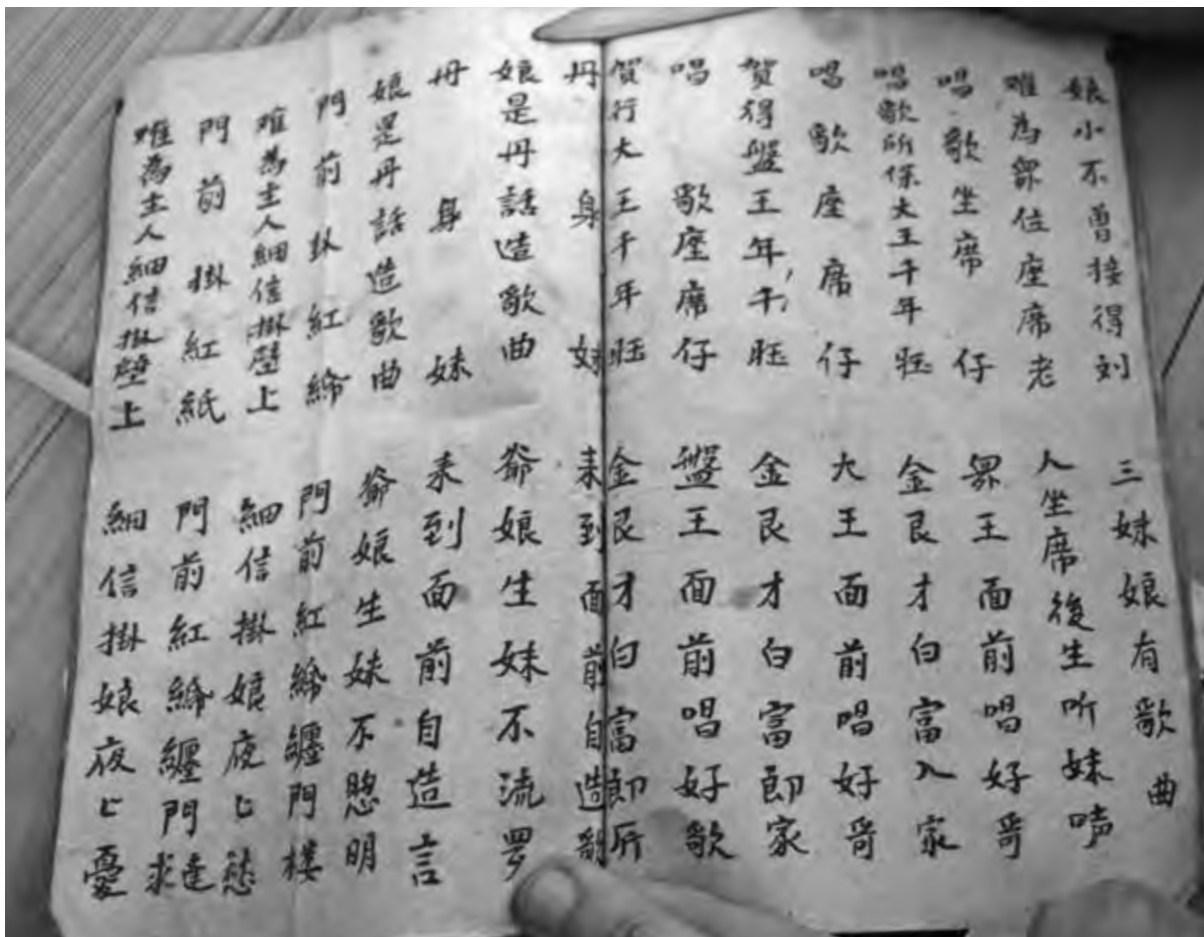 娘小不曾接得刘
三妹娘有歌曲
难為眾位座席老
人坐席後生听妹
唱歌坐席仔
眾王面前唱好哥
唱歌所保大王千年旺
金艮才白富入家
唱歌座席仔
大王面前唱好哥
賀得盤王年千旺
金艮才白富郎家
唱歌座席仔
盤王面前唱好歌
賀行大王千年旺
金艮才白富郎所
丹身妹
来到面前自造
娘是丹話造歌曲
爺娘生妹不流罗
丹身妹
来到面前自造言
娘是丹話造歌曲
爺娘生妹不聰明
門前卦紅
門前紅纏門樓
难為主人細信掛壁上
細信掛娘夜匕愁
門前掛紅紙
門前紅纏門
难為主人細信掛壁上
細信掛娘夜匕憂